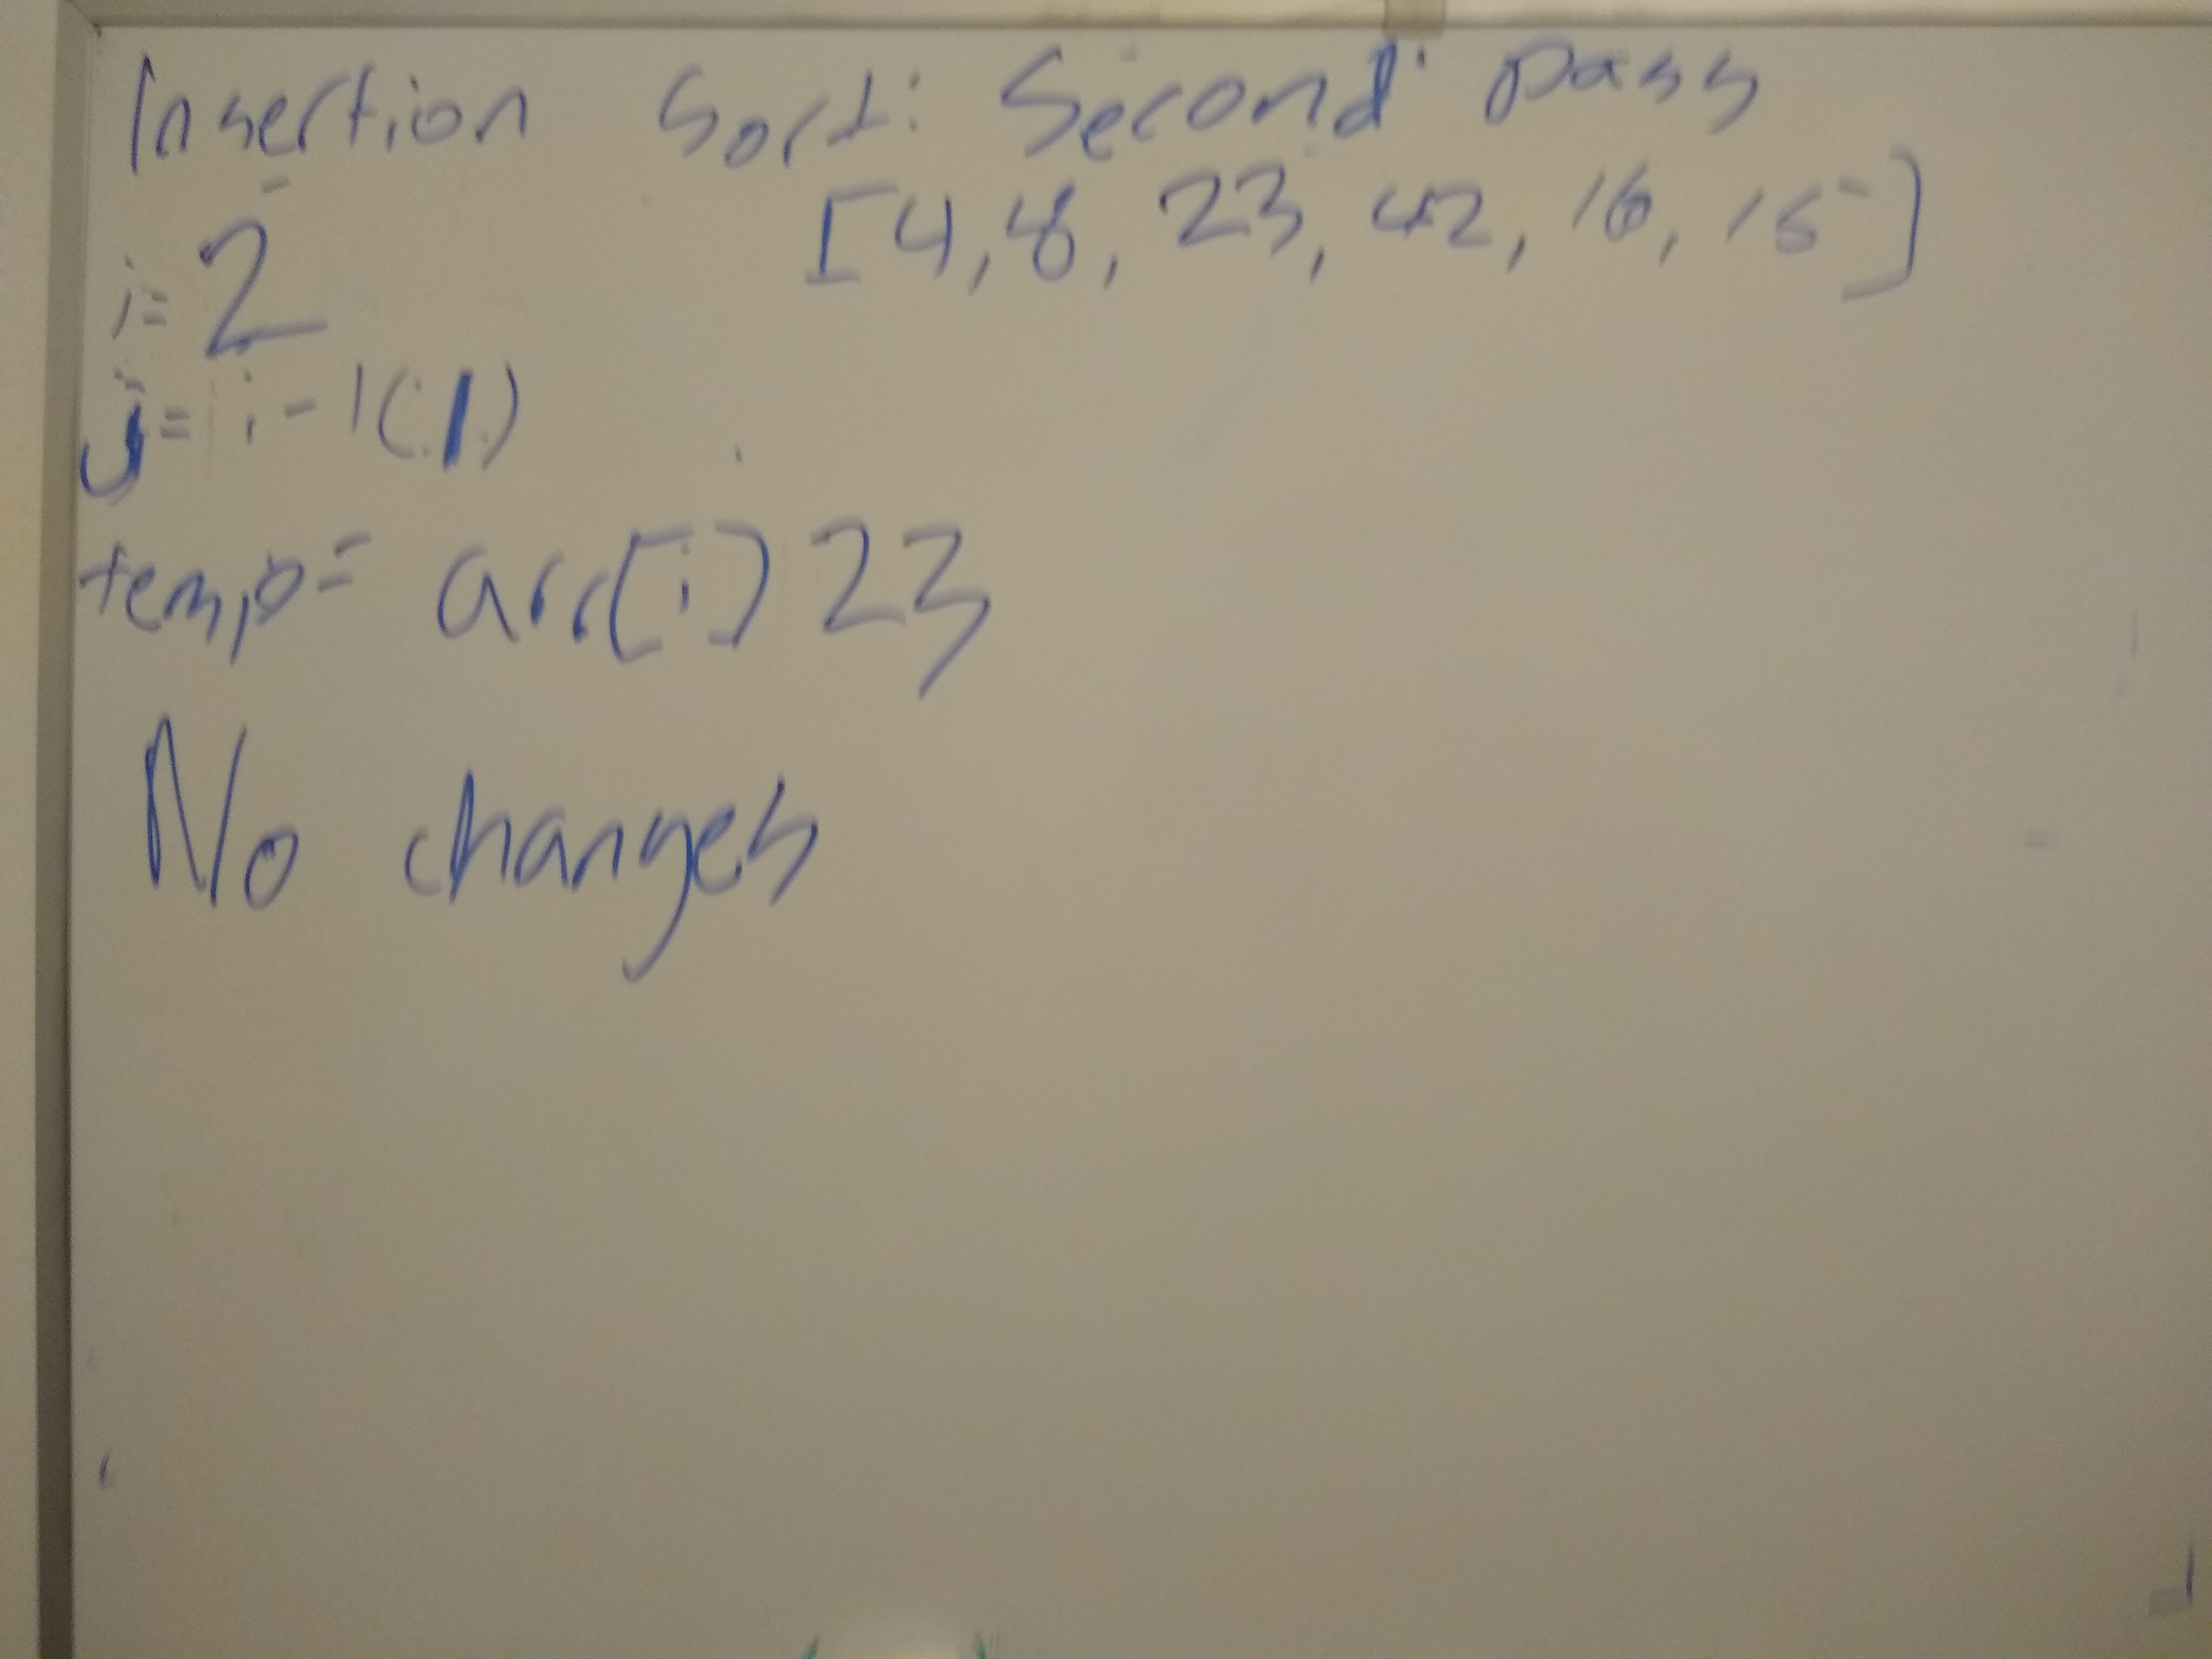 Insertion Sort: Second pass
[4, 8, 23, 42, 16, 15]
i = 2
j = i - 1 (1)
temp = arr[i] 23
No changes